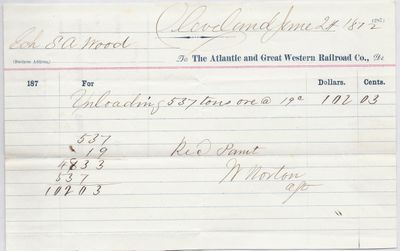 Cleveland June 24 1872
Sch S A Wood
(Business Address,)
To The Atlantic and Great Western Railroad Co., Dr.
187 For Dollars. Cents.
Unloading 537 tons ore @ 19c 102 03
537
19
4833
537
10203
Rec'd Pamt
W Norton
agt